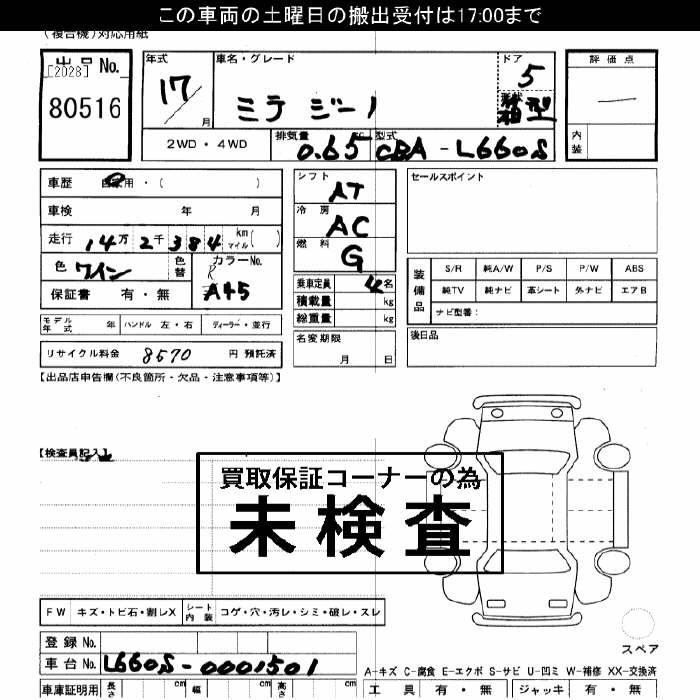 この車両の土曜日の搬出受付は17:00まで
(複合機)対応用紙
出品 No.
[2028]
80516
年式 車名・グレード ドア 評価点
17 月 ミラ ジーノ 5 形状 箱型 —
2WD・4WD 排気量 0.65 cc 型式 CBA-L660S 内装
車歴 自家用・( )
シフト AT
セールスポイント
車検 年 月
冷房 AC
走行 14万2千384 km マイル( )
燃料 G
色 ワイン 色替 カラーNo. R A45
保証書 有・無
乗車定員 4名
積載量 kg
総重量 kg
装備品 S/R 純A/W P/S P/W ABS
純TV 純ナビ 革シート 外ナビ エアB
ナビ型番:
モデル年式 年 ハンドル 左・右 ディーラー・並行
名変期限 月 日
後日品
リサイクル料金 8570 円 預託済
【出品店申告欄(不良箇所・欠品・注意事項等)】
【検査員記入】
買取保証コーナーの為
未検査
FW キズ・トビ石・割レX シート内装 コゲ・穴・汚レ・シミ・破レ・スレ
登録 No.
スペア
車台 No. L660S-0001501
A-キズ C-腐食 E-エクボ S-サビ U-凹ミ W-補修 XX-交換済
車庫証明用 長さ cm 幅 cm 高さ cm 工具 有・無 ジャッキ 有・無